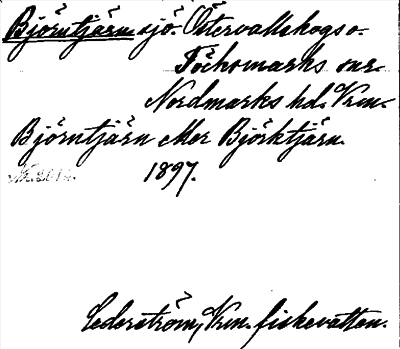 Björntjärn sjö. Östervallskogs o.
Töcksmarks snr.
Nordmarks hd. Vrm.
Björntjärn eller Björktjärn.
1897.
Cederström, Vrm. fiskevatten.